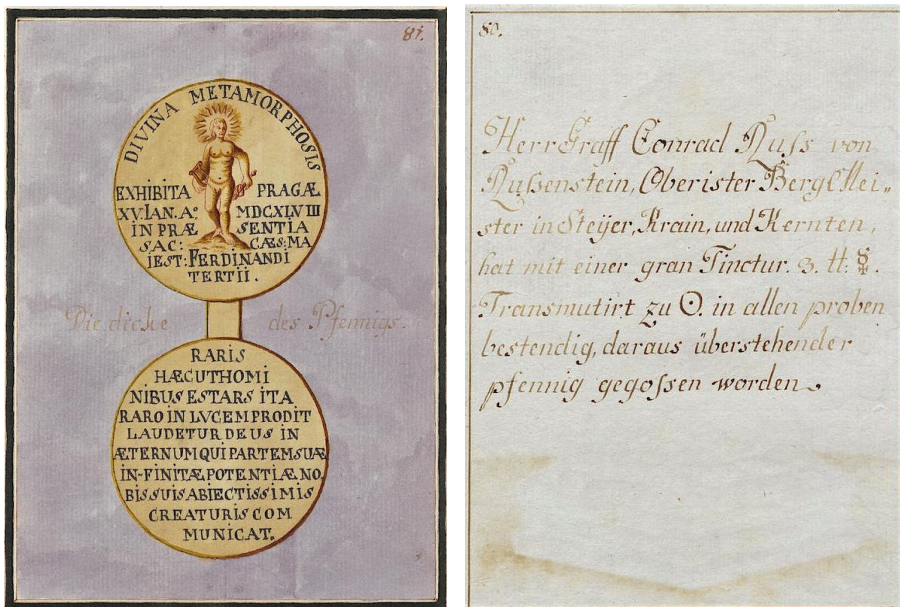 81.
DIVINA METAMORPHOSIS
EXHIBITA PRAGÆ
XV. IAN. Aº MDCXLVIII
IN PRÆ SENTIA
SAC: CÆS: MA
IEST: FERDINANDI
TERTII.
Die dicke des Pfennigs.
RARIS
HÆC UT HOMI
NIBUS EST ARS ITA
RARO IN LVCEM PRODIT
LAUDETUR DEUS IN
ÆTERNUM QUI PARTEM SUÆ
IN-FINITÆ POTENTIÆ NO
BIS SUIS ABIECTISSIMIS
CREATURIS COM
MUNICAT.
80.
Herr Graff Conrad Russ von
Russenstein, Oberister BergMei„
ster in Steÿer, Krain, und Kernten,
hat mit einer gran Tinctur. 3. ℔.
Transmutirt zu ☉. in allen proben
bestendig, daraus überstehender
pfennig gegossen worden.